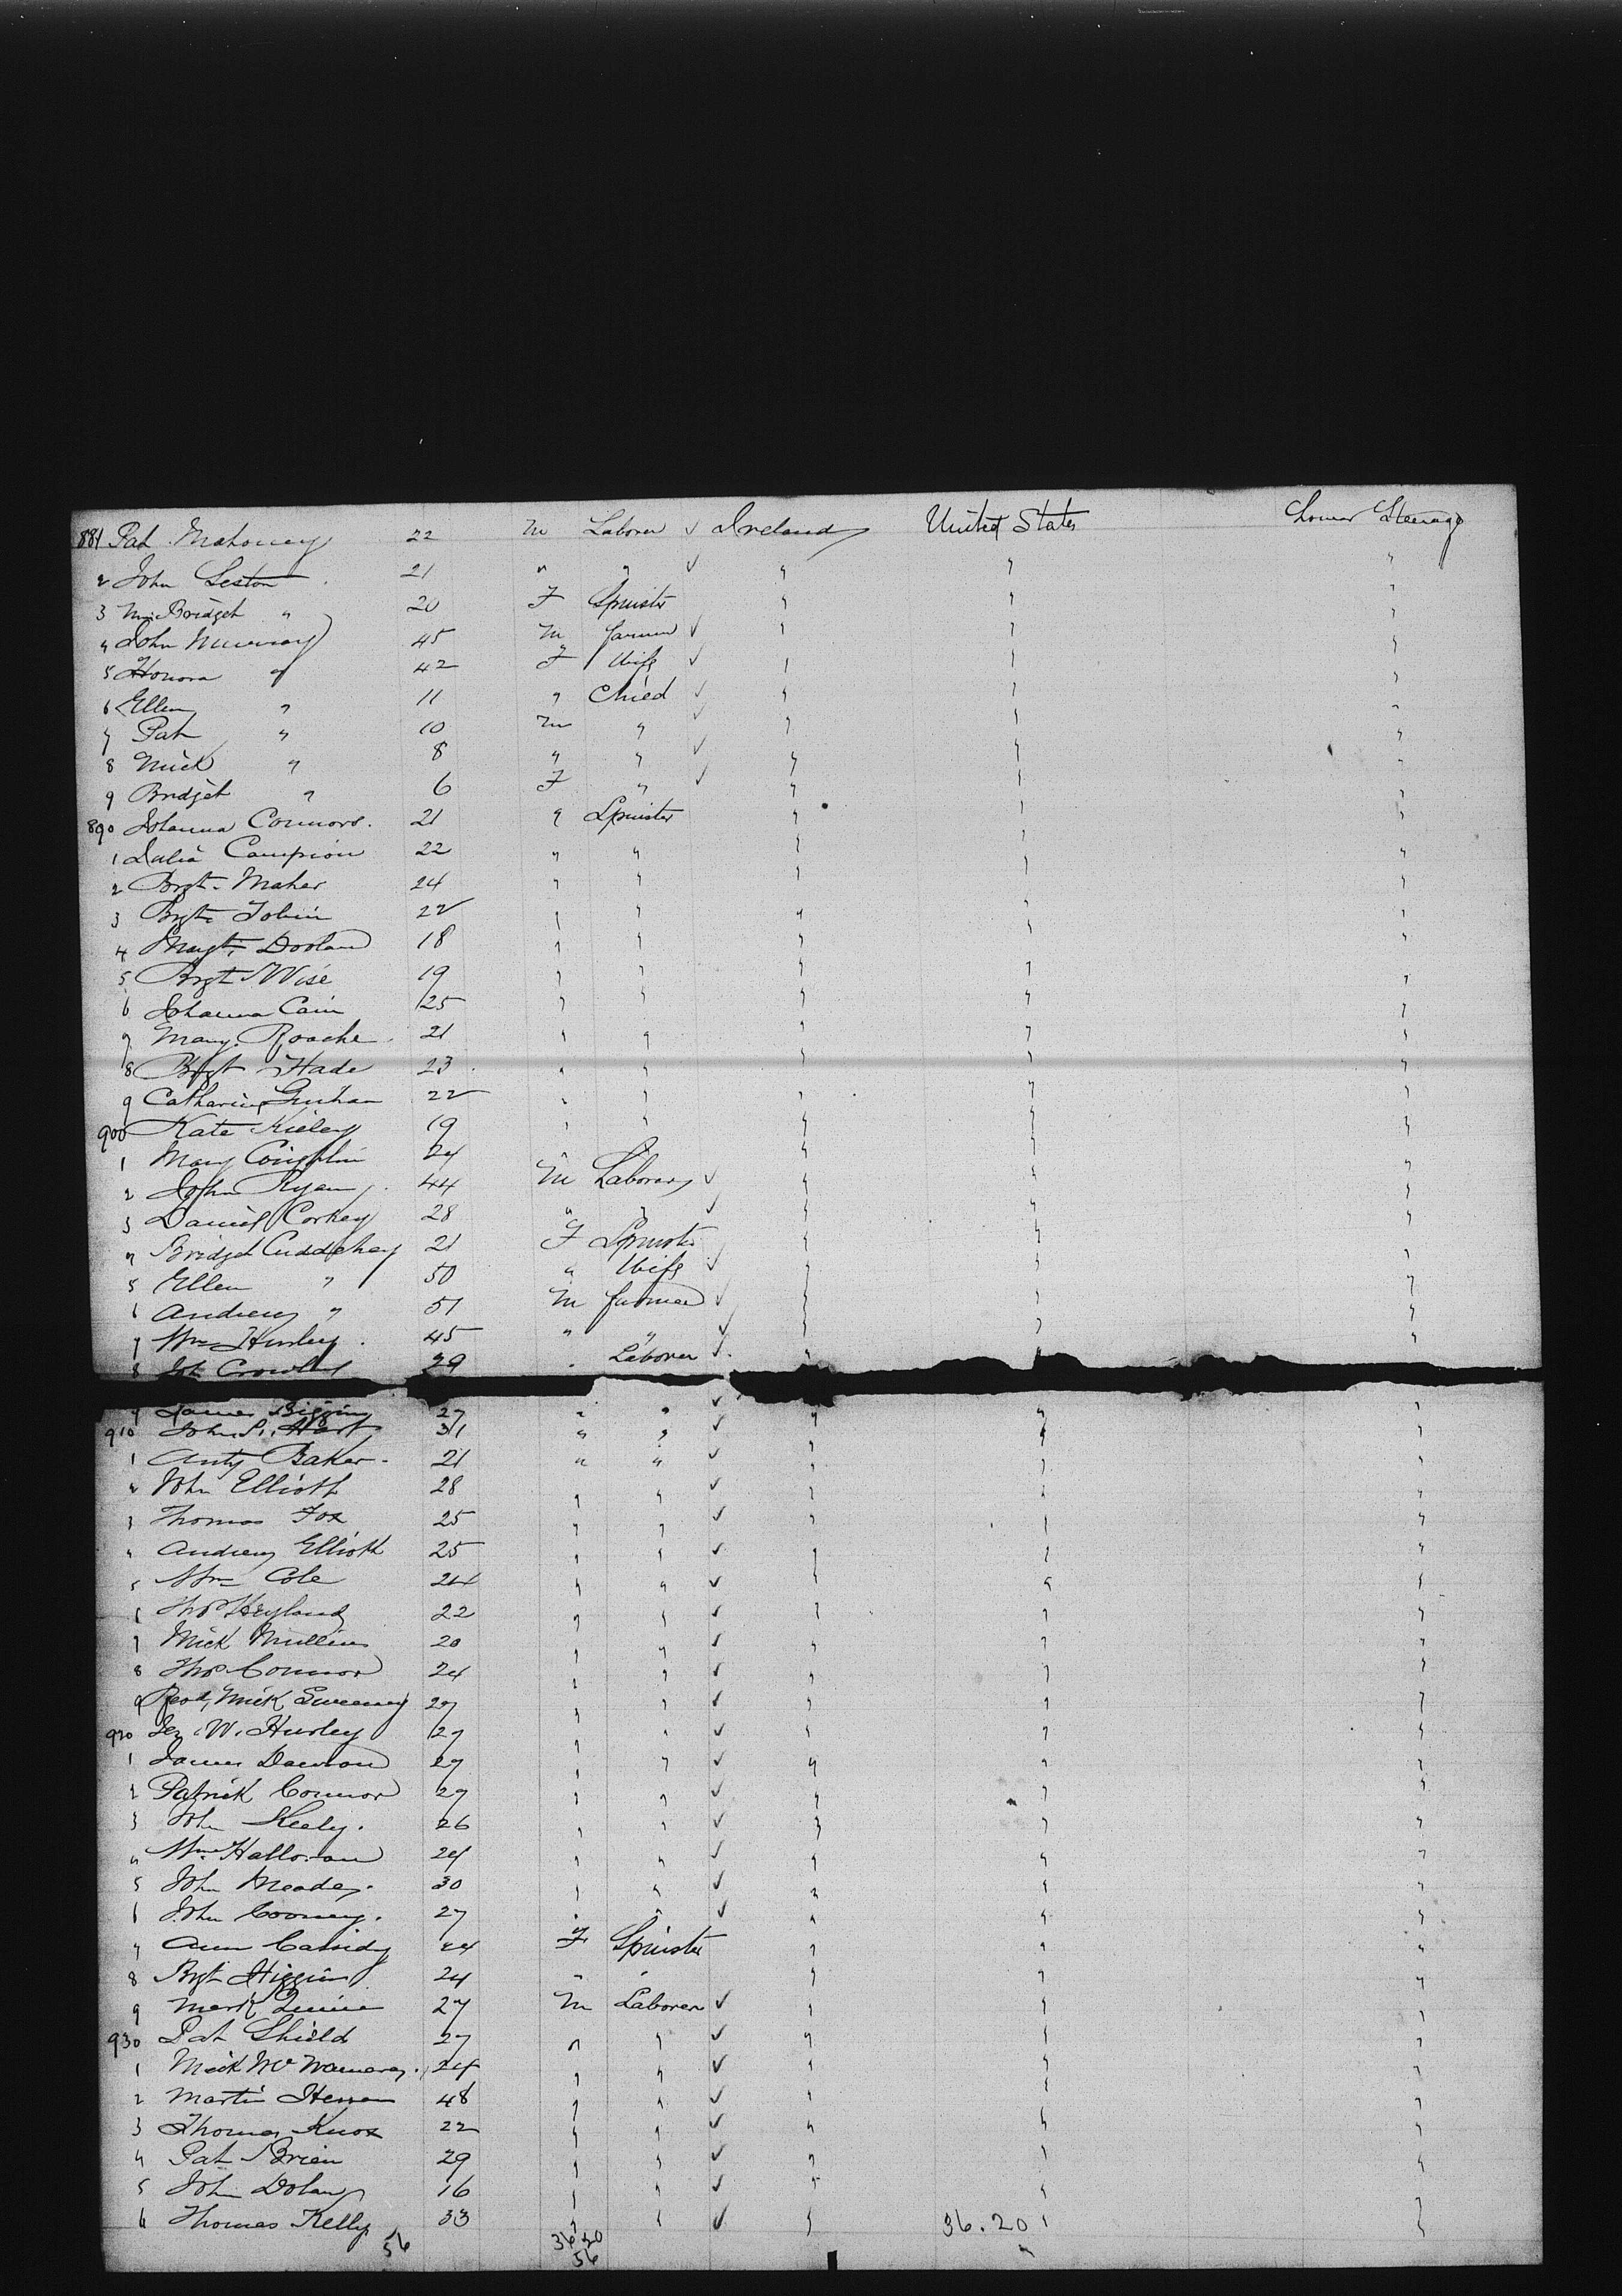 881 Pat Mahoney 22 M Laborer ✓ Ireland United States Lower Steerage
2 John Leston 21 " " ✓ " " "
3 Mrs Bridget " 20 F Spinster " " "
4 John Murray 45 M farmer ✓ " " "
5 Honora " 42 F Wife ✓ " " "
6 Ellen " 11 " Child ✓ " " "
7 Pat " 10 M " ✓ " " "
8 Mick " 8 " " ✓ " " "
9 Bridget " 6 F " ✓ " " "
890 Johanna Connors. 21 " Spinster " " "
1 Julia Campion 22 " " " " "
2 Brgt. Maher 24 " " " " "
3 Brgt. Tobin 22 " " " " "
4 Magt. Doolan 18 " " " " "
5 Brgt Wise 19 " " " " "
6 Johanna Cain 25 " " " " "
7 Mary Roache 21 " " " " "
8 Brgt Hade 23 " " " " "
9 Catharine 22 " " " " "
900 Kate Kieley 19 " " " " "
1 Mary Coughlin 24 " " " " "
2 John Ryan 44 M Laborer ✓ " " "
3 Daniel Corkey 28 " " ✓ " " "
4 Bridget Cuddehey 21 F Spinster " " "
5 Ellen " 50 " Wife ✓ " " "
6 Andrew " 51 M farmer ✓ " " "
7 Wm Hurley 45 " " ✓ " " "
8 Joh Crowley 29 " Laborer ✓ " " "
9 James 27 " " ✓ " " "
910 John P. Hart 31 " " ✓ " " "
1 Anty Baker 21 " " ✓ " " "
2 John Elliott 28 " " ✓ " " "
3 Thomas Fox 25 " " ✓ " " "
4 Andrew Elliott 25 " " ✓ " " "
5 Wm Cole 24 " " ✓ " " "
6 Thos Heyland 22 " " ✓ " " "
7 Mick Mullins 20 " " ✓ " " "
8 Thos Connor 24 " " ✓ " " "
9 Mick Sweeney 27 " " ✓ " " "
920 Jer. W. Hurley 27 " " ✓ " " "
1 James Dawson 27 " " ✓ " " "
2 Patrick Connor 29 " " ✓ " " "
3 John Keely. 26 " " ✓ " " "
4 Wm Halloran 24 " " ✓ " " "
5 John Meadey. 30 " " ✓ " " "
6 John Cooney. 27 " " ✓ " " "
7 Ann Cassidy 24 F Spinster " " "
8 Brgt Higgins 24 " " " " "
9 Mark Quinn 27 M Laborer ✓ " " "
930 Pat Shield 27 " " ✓ " " "
1 Mick McNamara 24 " " ✓ " " "
2 Martin 48 " " ✓ " " "
3 Thomas Knox 22 " " ✓ " " "
4 Pat Brien 29 " " ✓ " " "
5 John Dolan 16 " " ✓ " " "
6 Thomas Kelly 33 " " ✓ " 36.20 " "
56 36.20
56